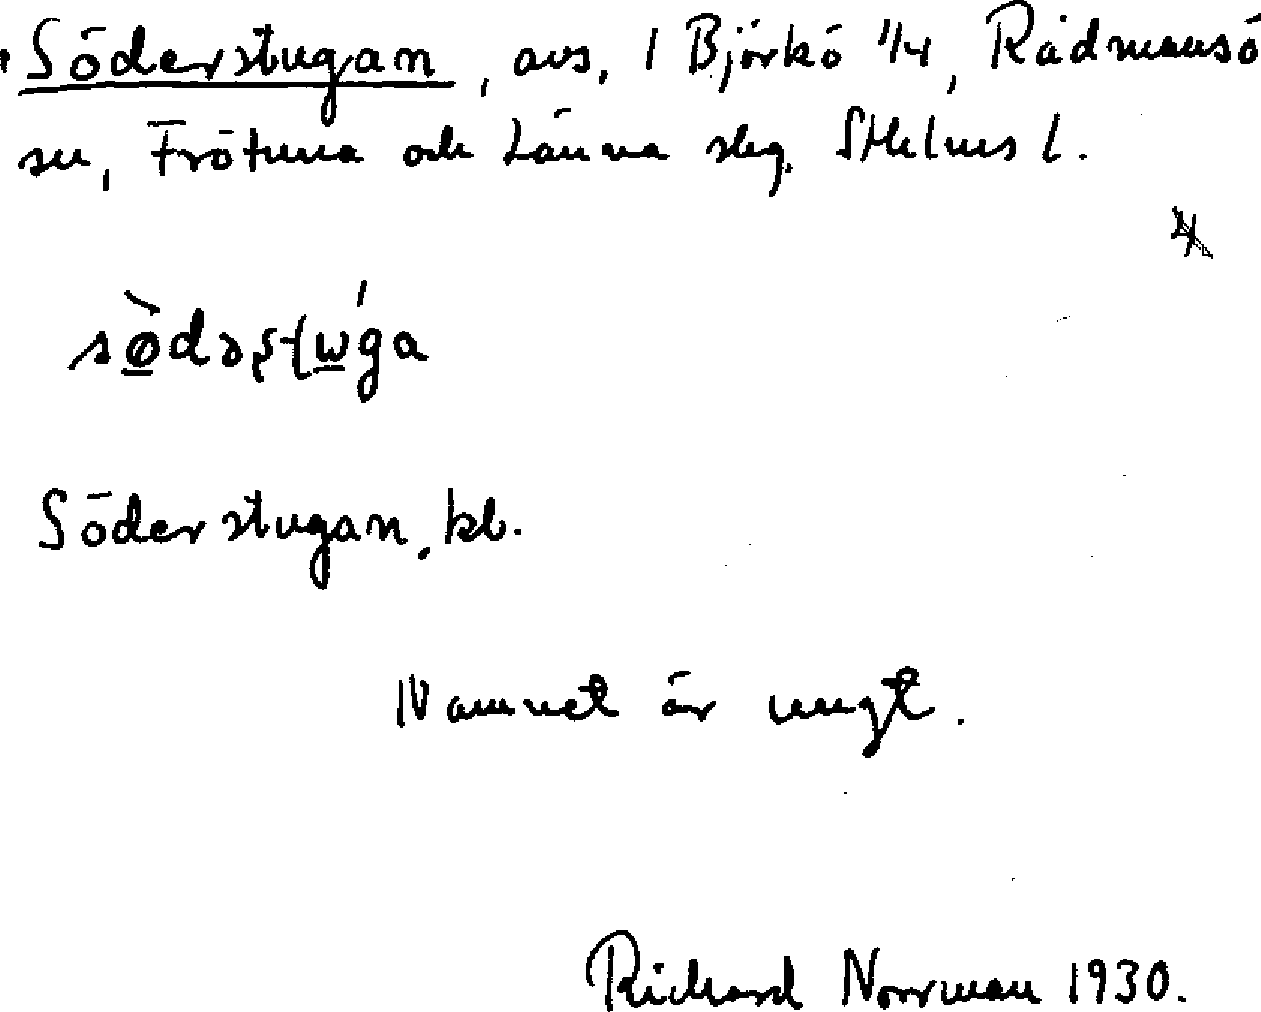 Söderstugan, avs, 1 Björkö 1/4, Rådmansö
sn, Frötuna och Länna skg. Sthlms l.
4
Söderstugan, kb.
Namnet är ungt.
Richard Norrman 1930.